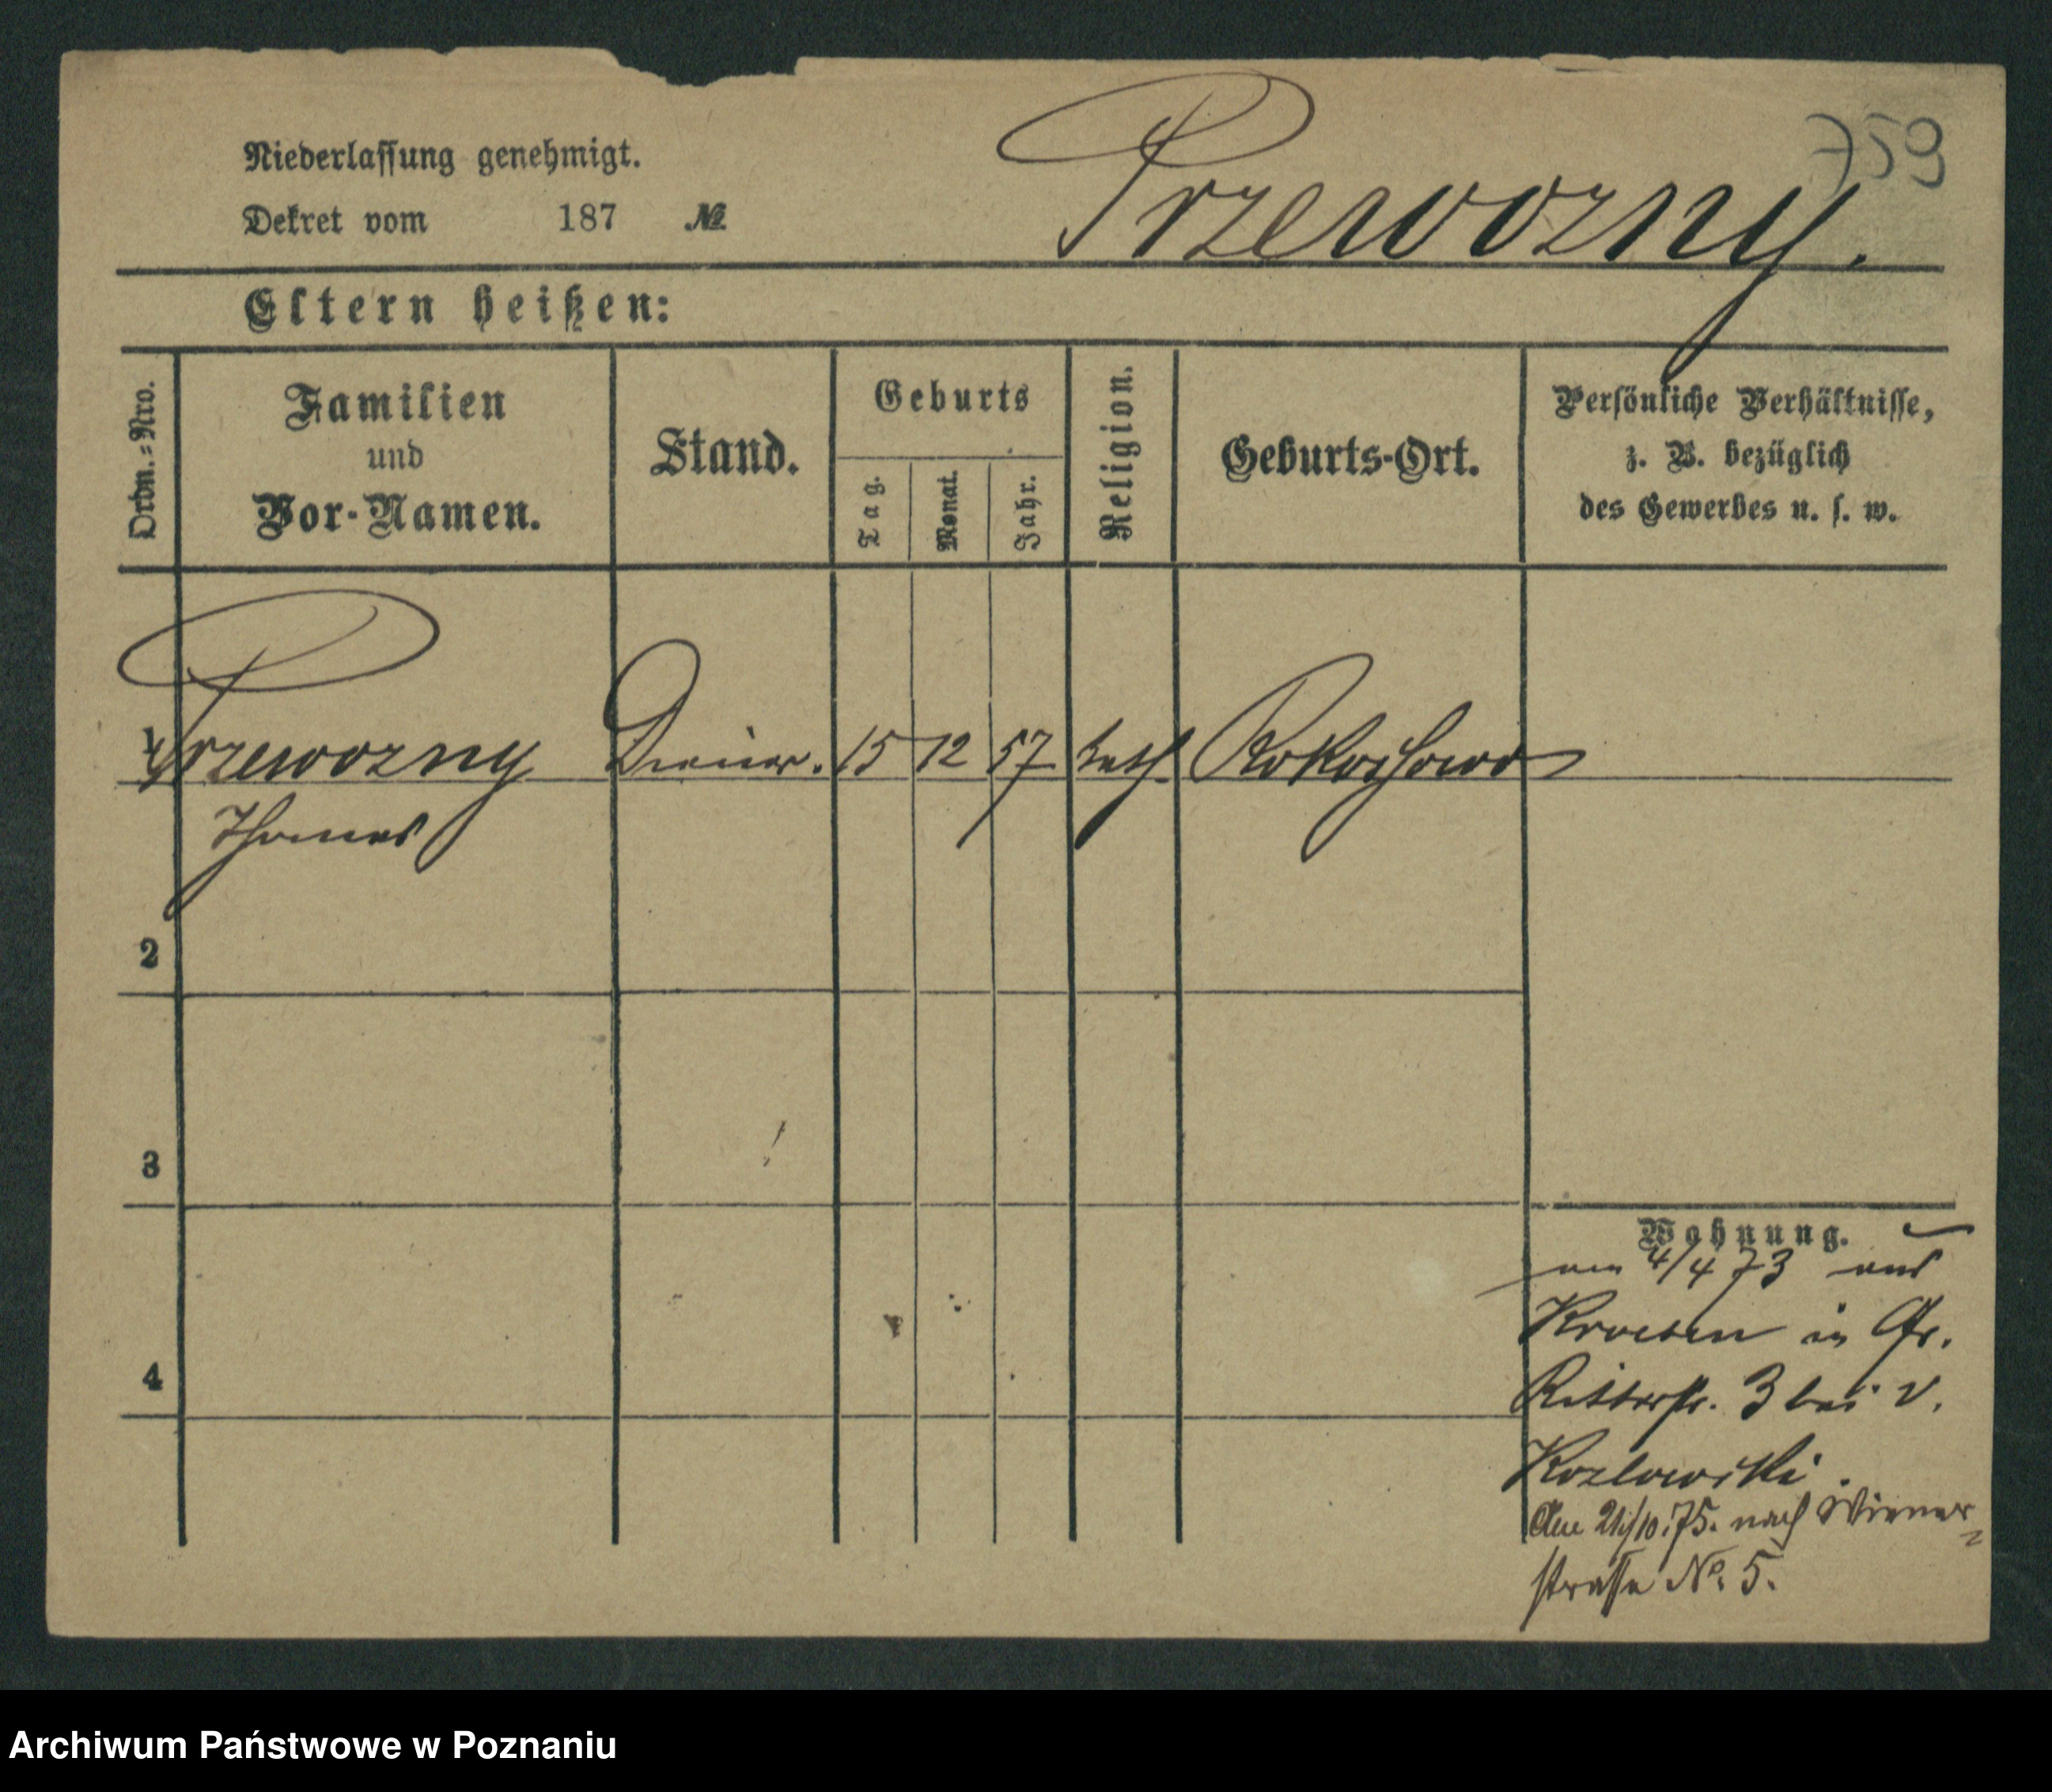 759
Przewozny.
Niederlassung genehmigt.
Dekret vom 187 №
Eltern heißen:
Ordn.=Nro.
Familien
und
Vor-Namen.
Stand.
Geburts
Tag.
Monat.
Jahr.
Religion.
Geburts-Ort.
Persönliche Verhältnisse,
z. B. bezüglich
des Gewerbes u. s. w.
1 Przewozny Diener. 15 12 57 kath.
Thomas
2
3
4
Wohnung.
am 4/4 73 aus
Kroeben in Gr.
Ritterstr. 3 bei v.
Kozlowski.
Den /10.75. nach Wiener=
straße No. 5.
Archiwum Państwowe w Poznaniu